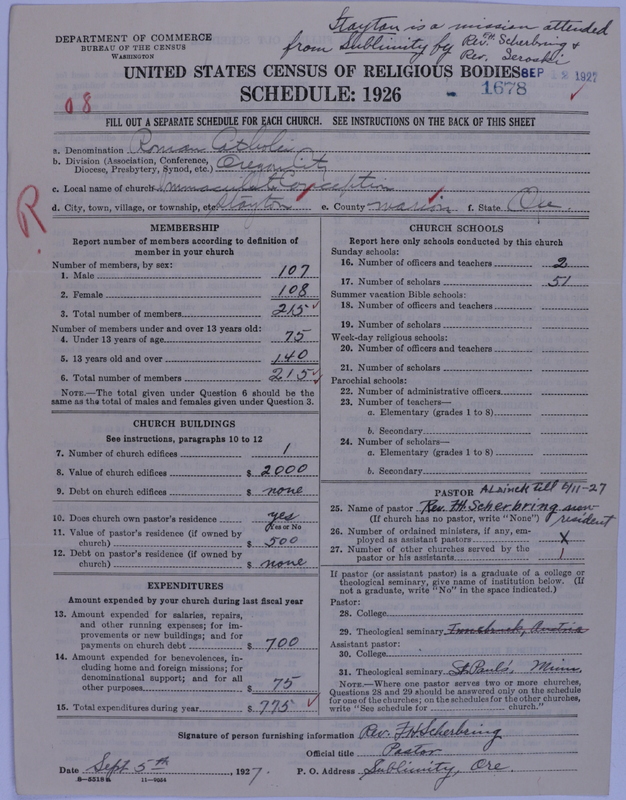 Stayton is a mission attended
from Sublimity by Rev. F.H. Scherbring &
Rev.
DEPARTMENT OF COMMERCE
BUREAU OF THE CENSUS
WASHINGTON
UNITED STATES CENSUS OF RELIGIOUS BODIES
SEP 12 1927
SCHEDULE: 1926
1678
08
FILL OUT A SEPARATE SCHEDULE FOR EACH CHURCH. SEE INSTRUCTIONS ON THE BACK OF THIS SHEET
a. Denomination Roman Catholic
b. Division (Association, Conference,
Diocese, Presbytery, Synod, etc.) Oregon City
c. Local name of church Immaculate Conception
d. City, town, village, or township, etc. Stayton e. County Marion f. State Ore.
R
MEMBERSHIP
Report number of members according to definition of
member in your church
Number of members, by sex:
1. Male 107
2. Female 108
3. Total number of members 215
Number of members under and over 13 years old:
4. Under 13 years of age 75
5. 13 years old and over 140
6. Total number of members 215
NOTE.—The total given under Question 6 should be
the same as the total of males and females given under Question 3.
CHURCH BUILDINGS
See instructions, paragraphs 10 to 12
7. Number of church edifices 1
8. Value of church edifices $ 2000
9. Debt on church edifices $ none
10. Does church own pastor's residence yes
Yes or No
11. Value of pastor's residence (if owned by
church) $ 500
12. Debt on pastor's residence (if owned by
church) $ none
EXPENDITURES
Amount expended by your church during last fiscal year
13. Amount expended for salaries, repairs,
and other running expenses; for im-
provements or new buildings; and for
payments on church debt $ 700
14. Amount expended for benevolences, in-
cluding home and foreign missions; for
denominational support; and for all
other purposes $ 75
15. Total expenditures during year $ 775
CHURCH SCHOOLS
Report here only schools conducted by this church
Sunday schools:
16. Number of officers and teachers 2
17. Number of scholars 51
Summer vacation Bible schools:
18. Number of officers and teachers
19. Number of scholars
Week-day religious schools:
20. Number of officers and teachers
21. Number of scholars
Parochial schools:
22. Number of administrative officers
23. Number of teachers—
a. Elementary (grades 1 to 8)
b. Secondary
24. Number of scholars—
a. Elementary (grades 1 to 8)
b. Secondary
PASTOR till 6/11-27
25. Name of pastor Rev. F.H. Scherbring non-
(If church has no pastor, write "None") resident
26. Number of ordained ministers, if any, em-
ployed as assistant pastors X
27. Number of other churches served by the
pastor or his assistants 1
If pastor (or assistant pastor) is a graduate of a college or
theological seminary, give name of institution below. (If
not a graduate, write "No" in the space indicated.)
Pastor:
28. College
29. Theological seminary Innsbruck, Austria
Assistant pastor:
30. College
31. Theological seminary St. Paul's, Minn.
NOTE.—Where one pastor serves two or more churches,
Questions 28 and 29 should be answered only on the schedule
for one of the churches; on the schedules for the other churches,
write "See schedule for church."
Signature of person furnishing information Rev. F H Scherbring
Official title Pastor
Date Sept 5th, 1927. P. O. Address Sublimity, Ore.
8-5318a 11-9034